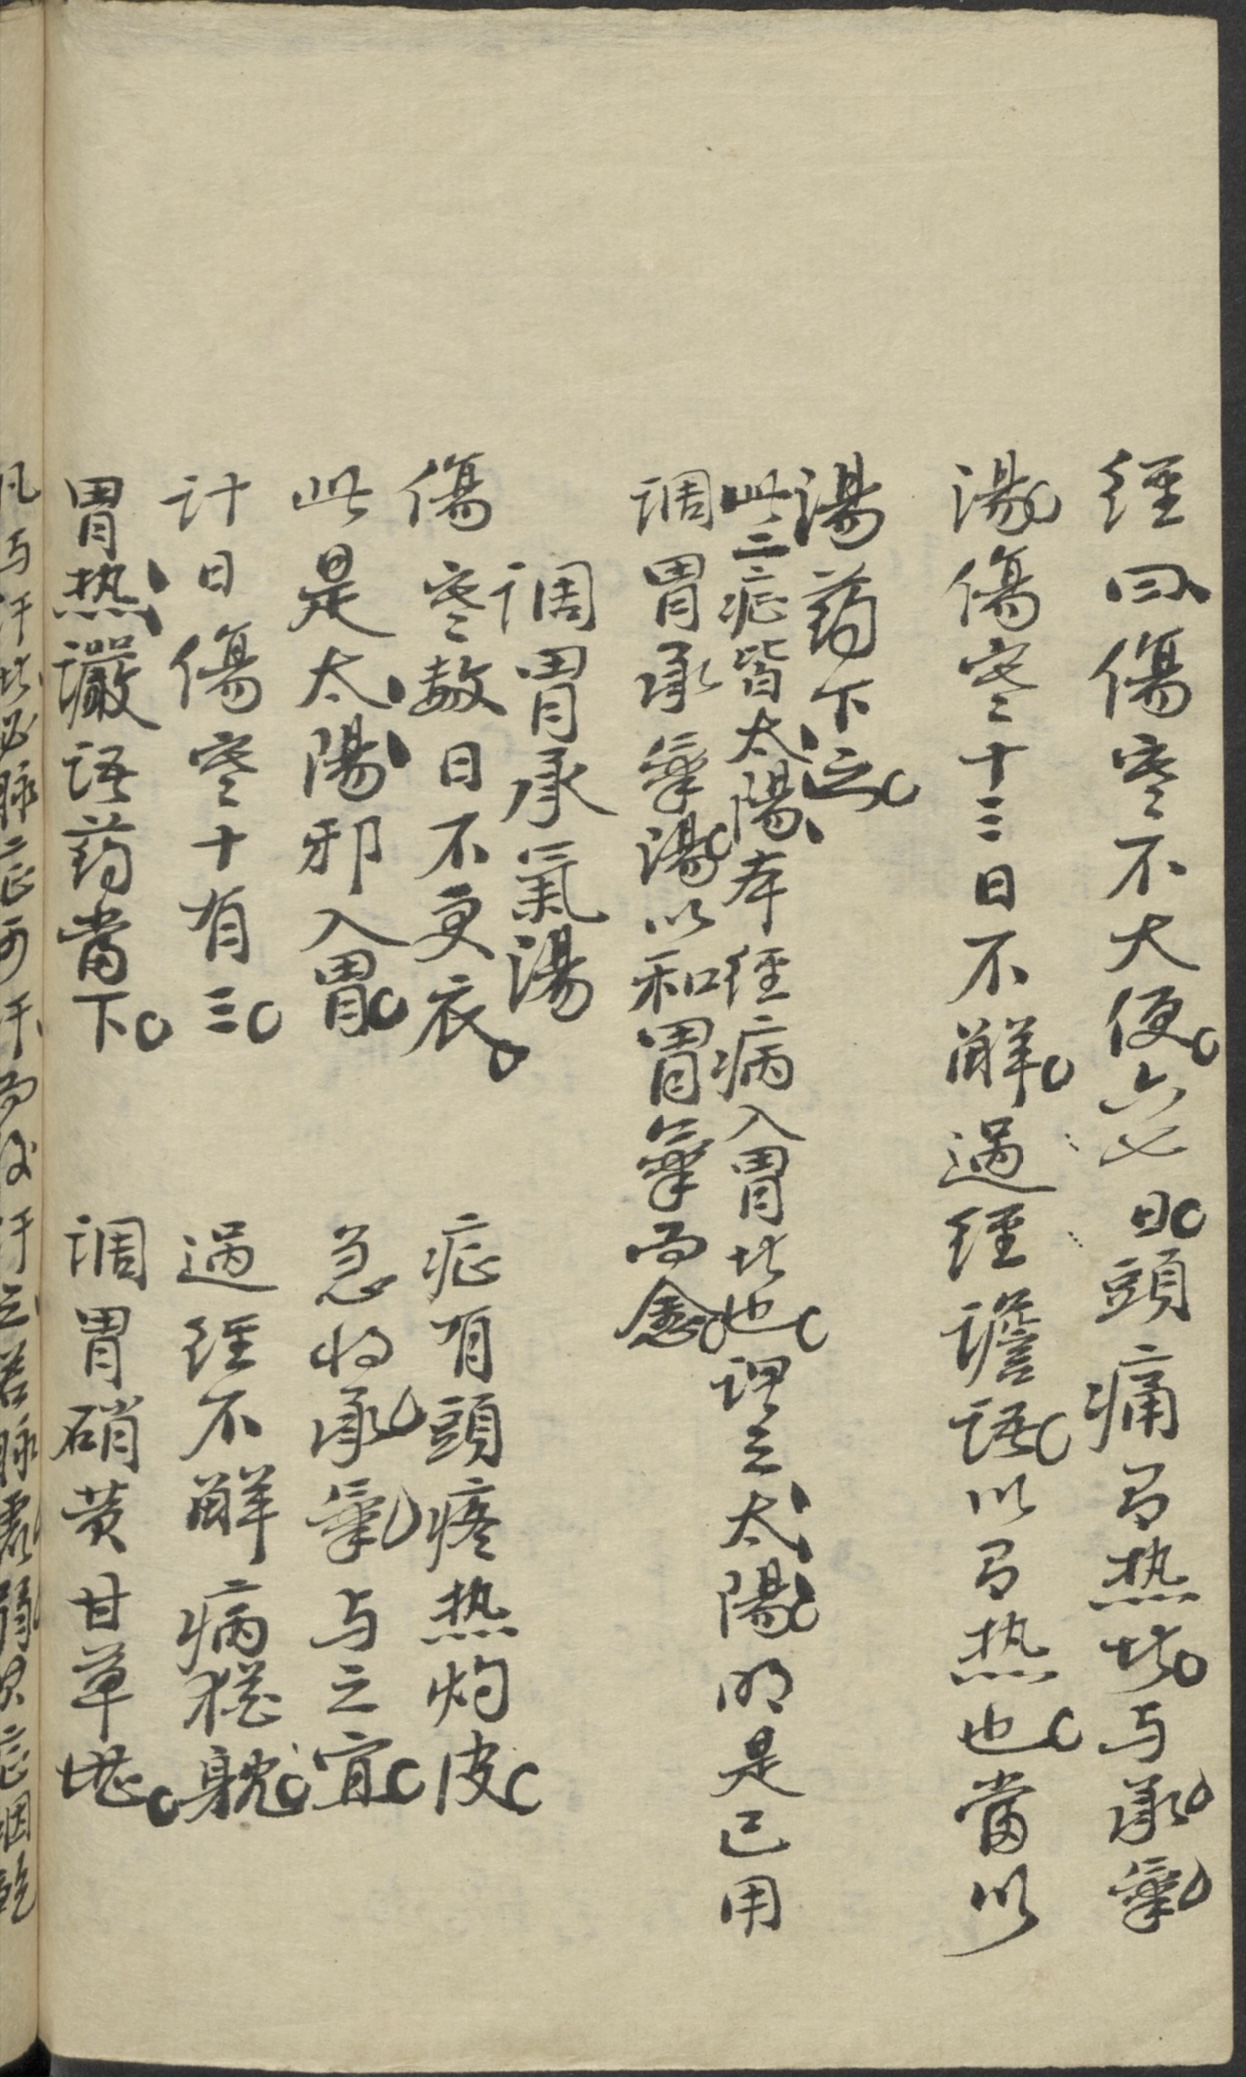 經曰傷寒不大便六七日頭痛有热者与承氣
湯傷寒十三日不解過經譫語以有热也當以
湯药下之
此二症皆太陽本經病入胃者也謂之太陽明是已用
调胃承氣湯以和胃氣而愈
调胃承氣湯
傷寒数日不更衣 症有頭疼热灼皮
此是太陽邪入胃 急将承氣与之宜
計日傷寒十有三 過經不解病猶躭
胃热讝語药當下 调胃硝黄甘草堪
凡与汗者必脉症可汗而後汗之若脉虛弱